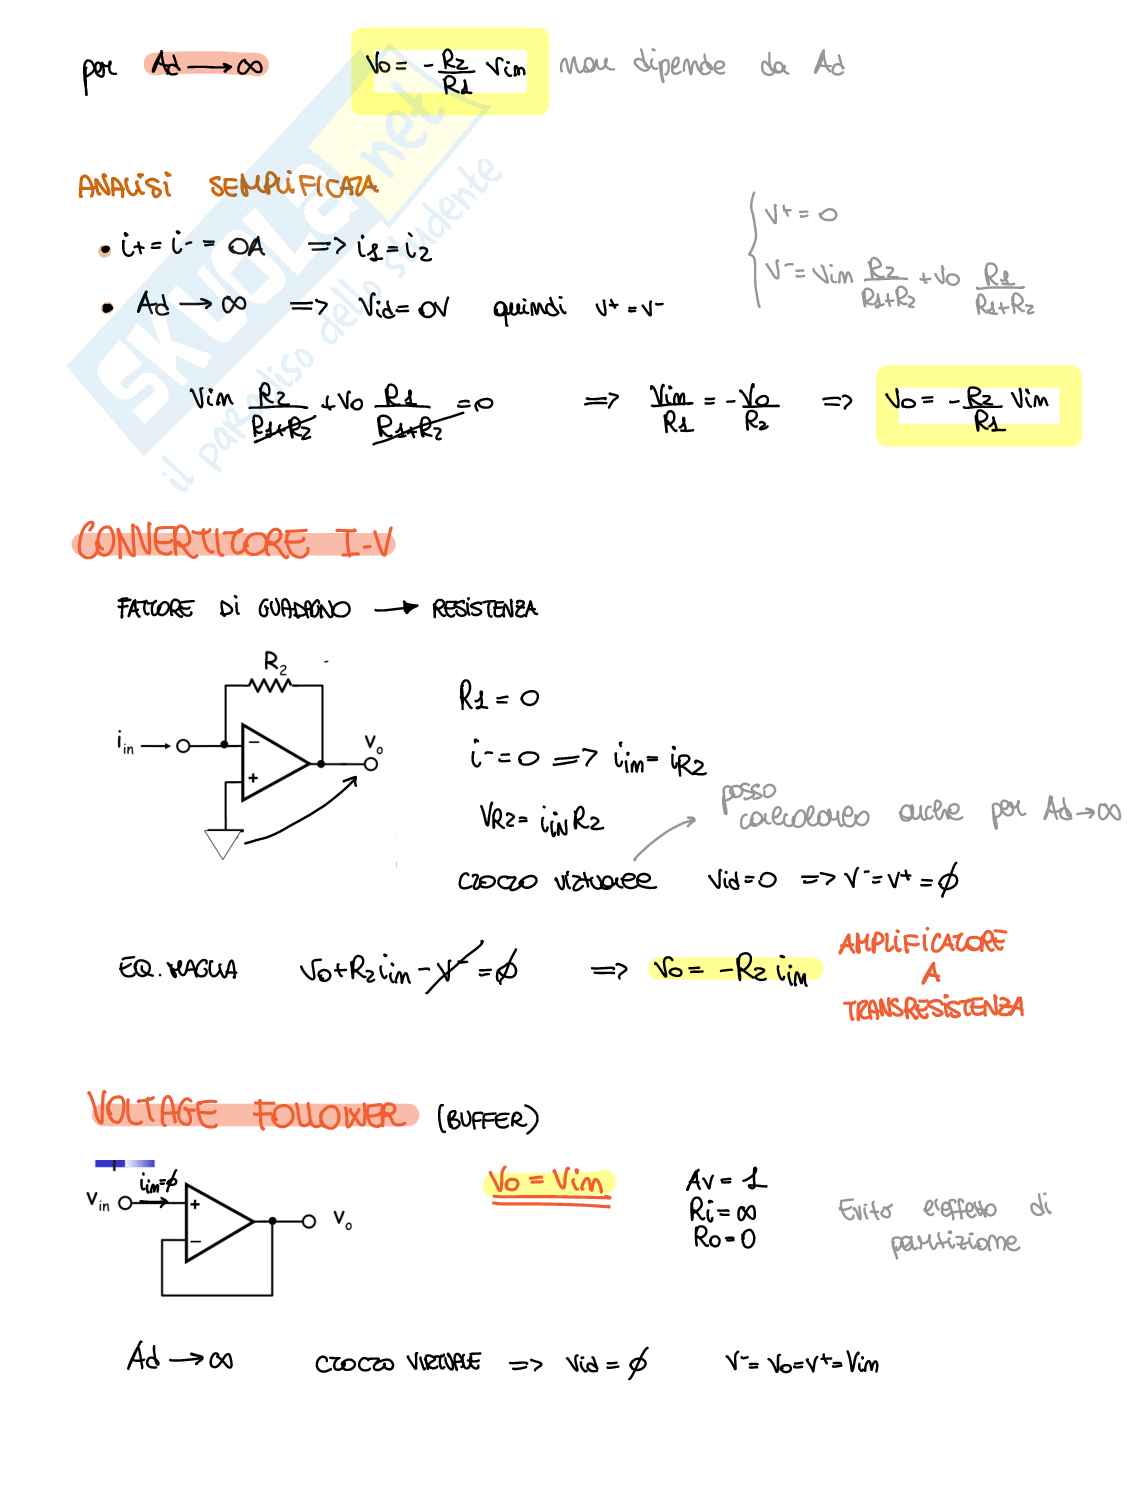 per Ad → ∞ Vo = - R2/R1 Vin non dipende da Ad
ANALISI SEMPLIFICATA
• i+ = i- = 0A => i1 = i2
• Ad → ∞ => Vid = 0V quindi V+ = V-
V+ = 0
V- = Vin R2/R1+R2 + Vo R1/R1+R2
Vin R2/R1+R2 + Vo R1/R1+R2 = 0 => Vin/R1 = - Vo/R2 => Vo = - R2/R1 Vin
CONVERTITORE I-V
FATTORE DI GUADAGNO → RESISTENZA
R2
iin
vo
- +
R1 = 0
i- = 0 => iin = iR2
VR2 = iin R2
posso
calcolarlo anche per Ad → ∞
CTO CTO VIRTUALE Vid = 0 => V- = V+ = ϕ
EQ. MAGLIA Vo + R2 iin - V- = ϕ => Vo = - R2 iin
AMPLIFICATORE
A
TRANSRESISTENZA
VOLTAGE FOLLOWER (BUFFER)
iin = ϕ
vin
vo
+ -
Vo = Vin
Av = 1
Ri = ∞
Ro = 0
Evito l'effetto di
partizione
Ad → ∞ CTO CTO VIRTUALE => Vid = ϕ V- = Vo = V+ = Vin
SKUOLA.net
il paradiso dello studente